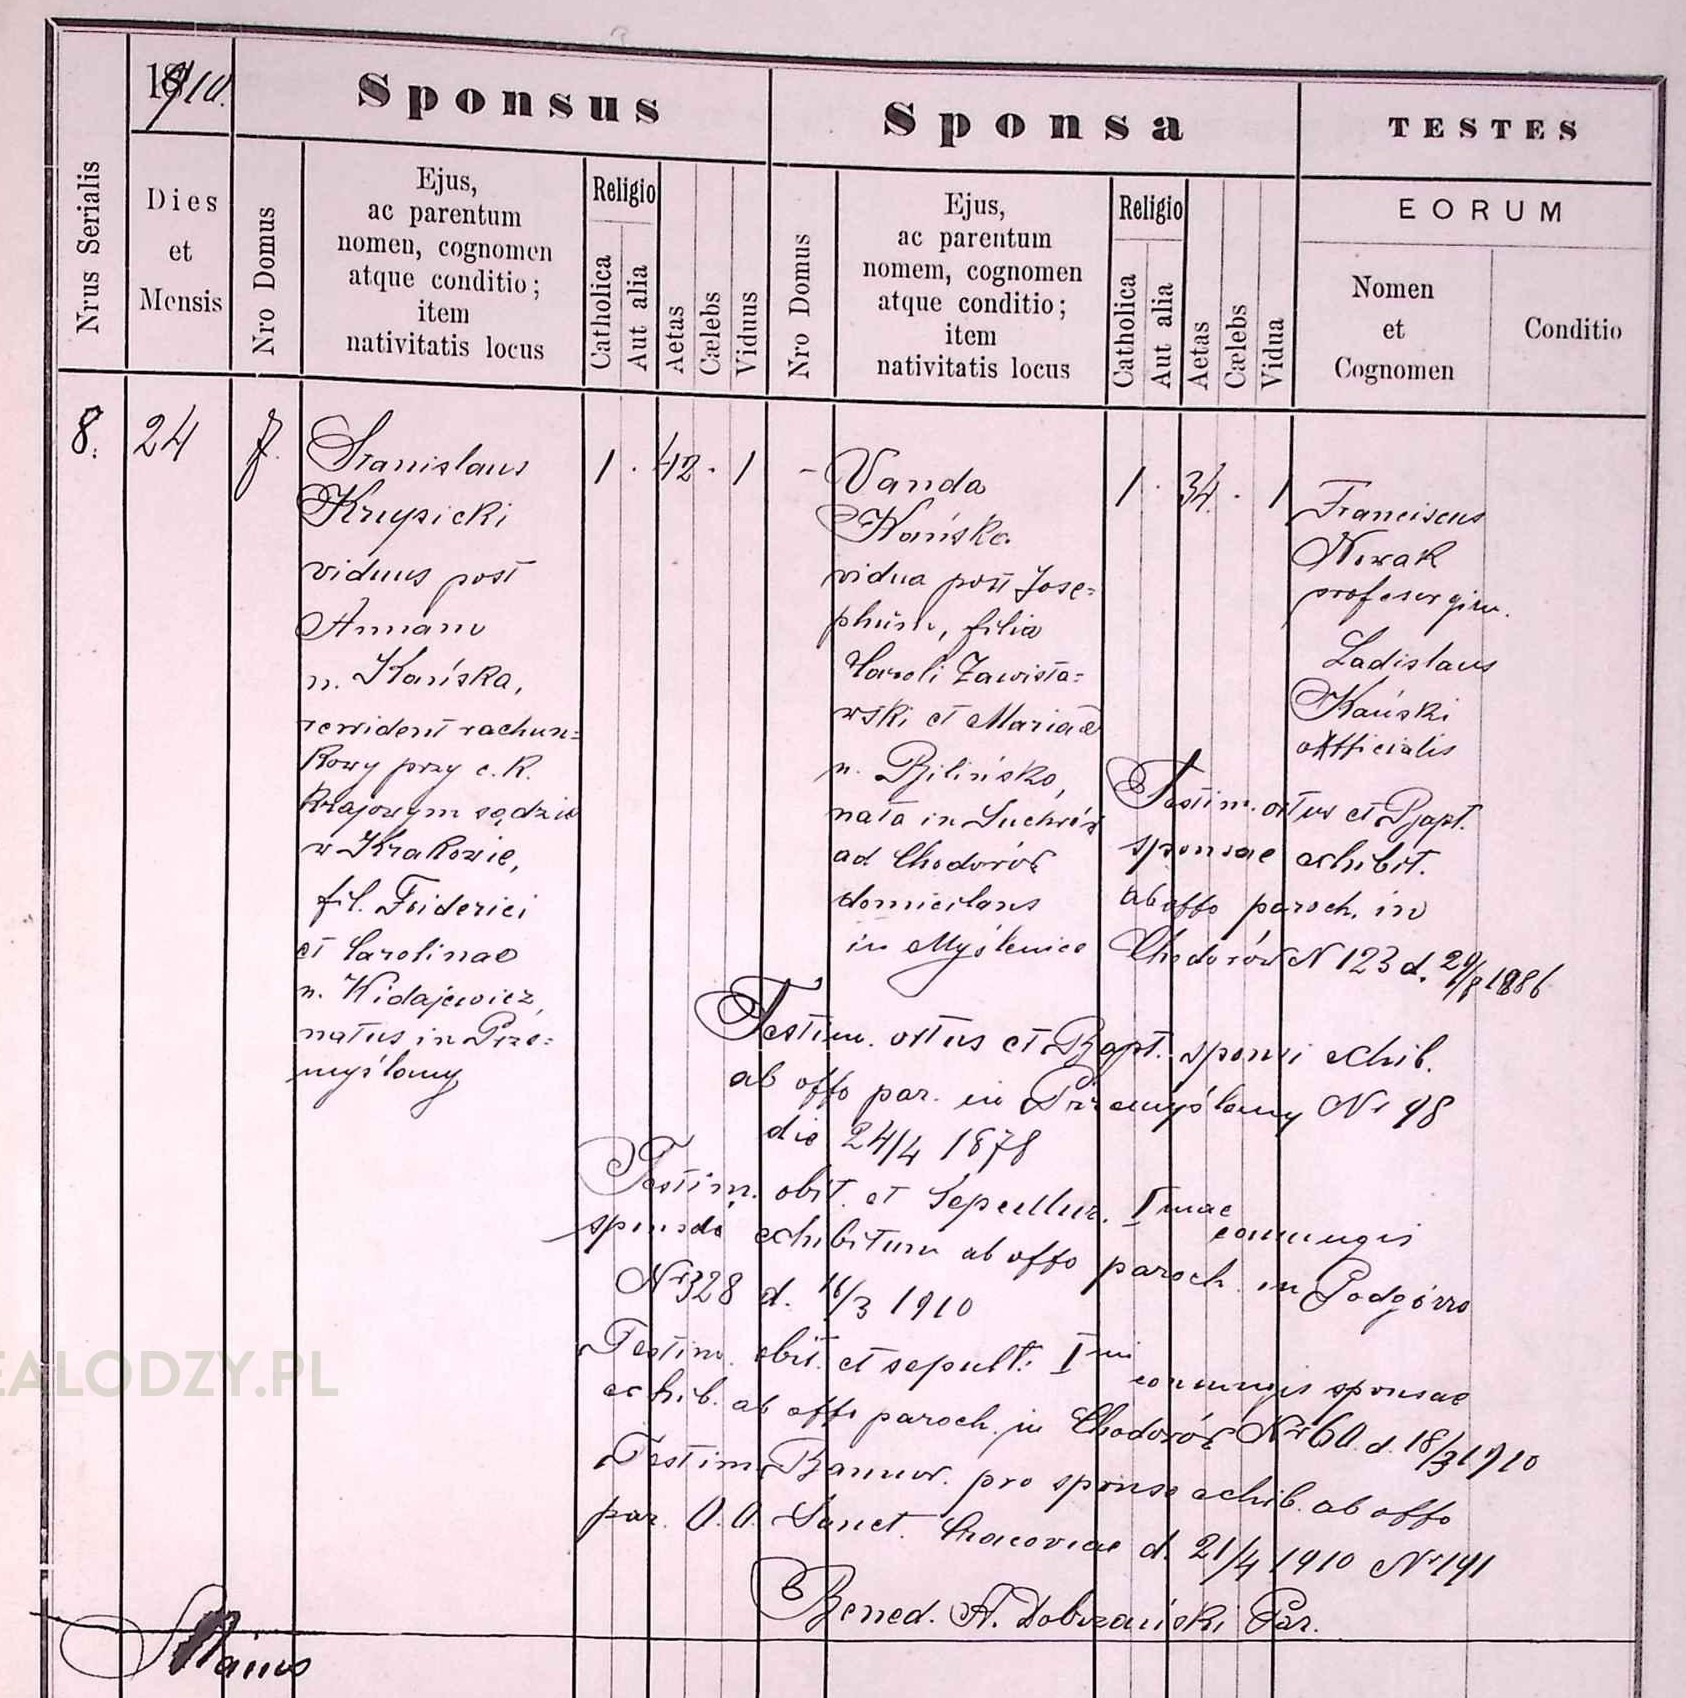 1910.
Sponsus
Sponsa
TESTES
Nrus Serialis
Dies
et
Mensis
Nro Domus
Ejus,
ac parentum
nomen, cognomen
atque conditio;
item
nativitatis locus
Religio
Catholica
Aut alia
Aetas
Cælebs
Viduus
Nro Domus
Ejus,
ac parentum
nomem, cognomen
atque conditio;
item
nativitatis locus
Religio
Catholica
Aut alia
Aetas
Cælebs
Vidua
EORUM
Nomen
et
Cognomen
Conditio
8.
24
f.
Stanislaus
Krupicki
viduus post
Annam
n. Kańska,
rewident rachun=
kowy przy c. k.
krajowym sądzie
w Krakowie,
fil. Friderici
et Carolinae
n. Widajewicz,
natus in Prze=
myślany
1 . 42 . 1
-
Vanda
Kańska
vidua post Jose=
phum, filia
Caroli Zawista=
wski et Mariae
n. Bilińska,
nata in Suchrów
ad Chodorów
domicilans
in Myślenice
1 . 34 . 1
Franciscus
Nowak
profesor gim.
Ladislaus
Kański
officialis
Testim. ortus et Bapt.
sponsae exhibit.
ab offo paroch. in
Chodorów N 123 d. 29/8 1886
Testim. ortus et Bapt. sponsi exhib.
ab offo par. in Przemyślany Nr 98
die 24/4 1878
Testim. obit. et Sepultur. Imae conjugis
sponsi exhibitum ab offo paroch. in Podgórze
Nr 328 d. 16/3 1910
Testim. obit. et sepult. Imi conjugis sponsae
exhib. ab offo paroch. in Chodorów Nr 60. d. 18/3 1910
Testim. Bannor. pro sponso exhib. ab offo
par. O.O. Sanct. Cracoviae d. 21/4 1910 Nr 191
Bened. A. Dobrzański Par.
Maius
EALODZY.PL